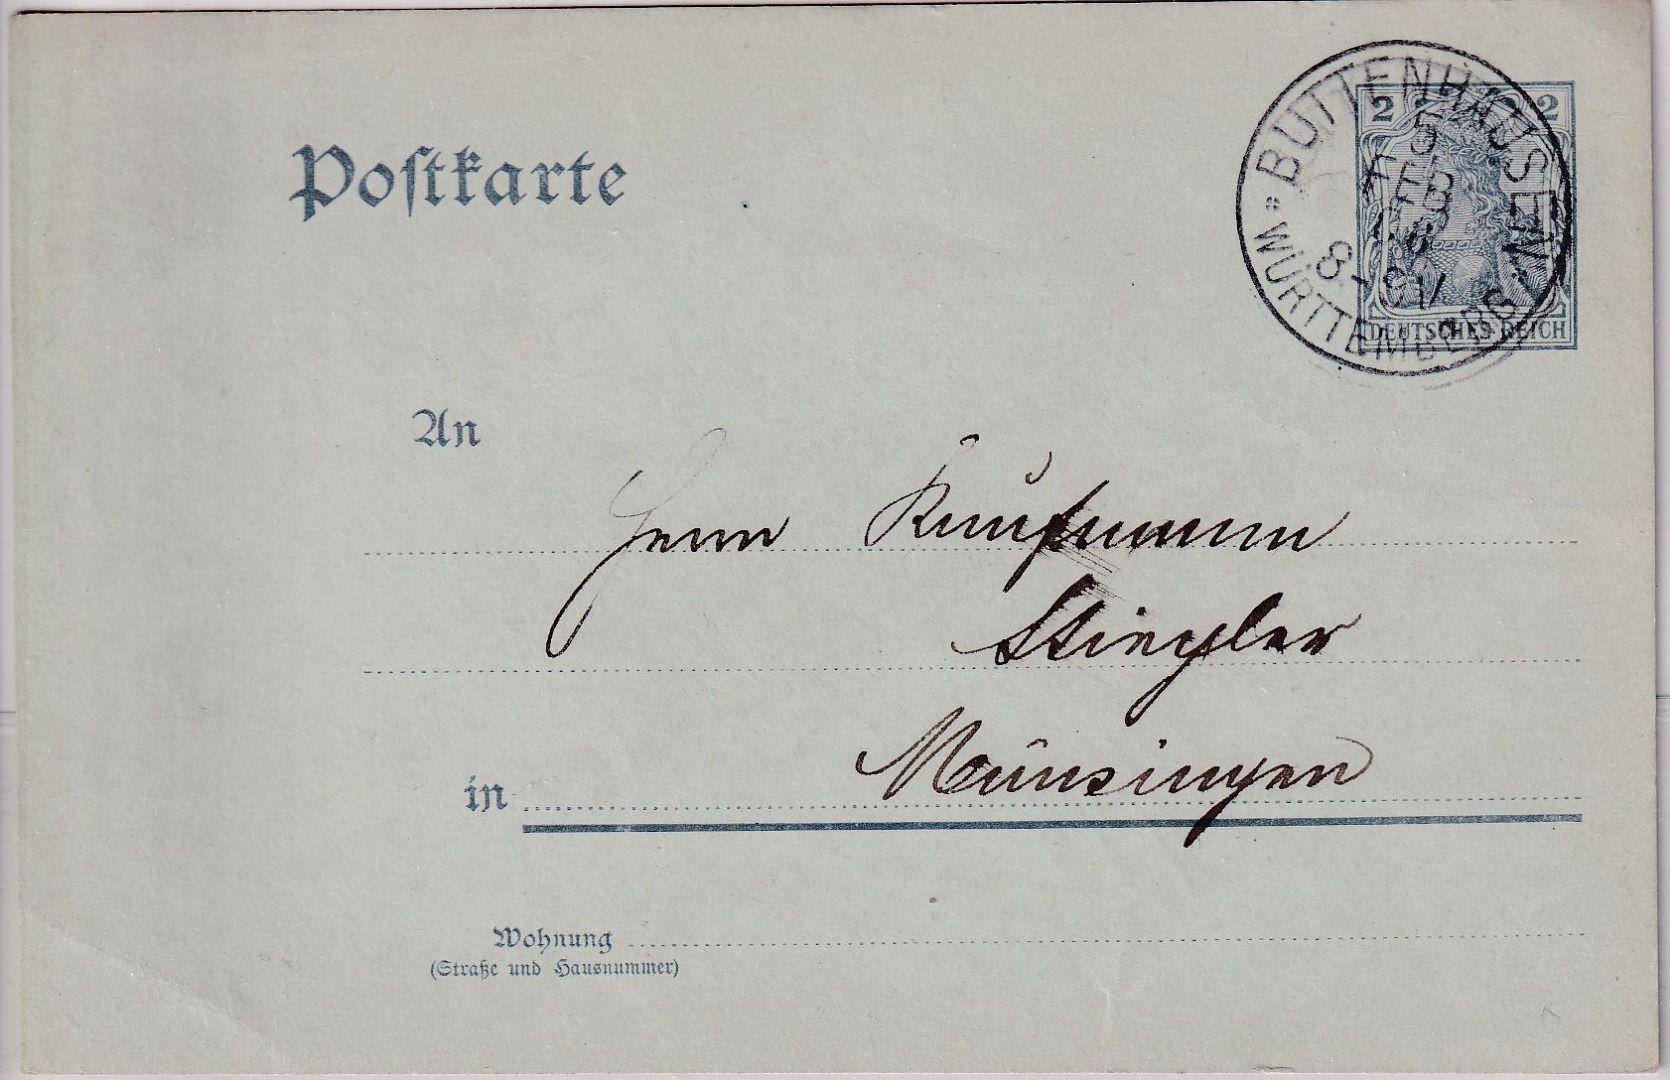 Postkarte
BUTTENHAUSEN
WÜRTTEMBERG
5
FEB
8-9V
2 2
DEUTSCHES REICH
An
Herrn Kaufmann
Stiegler
in Münsingen
Wohnung
(Straße und Hausnummer)